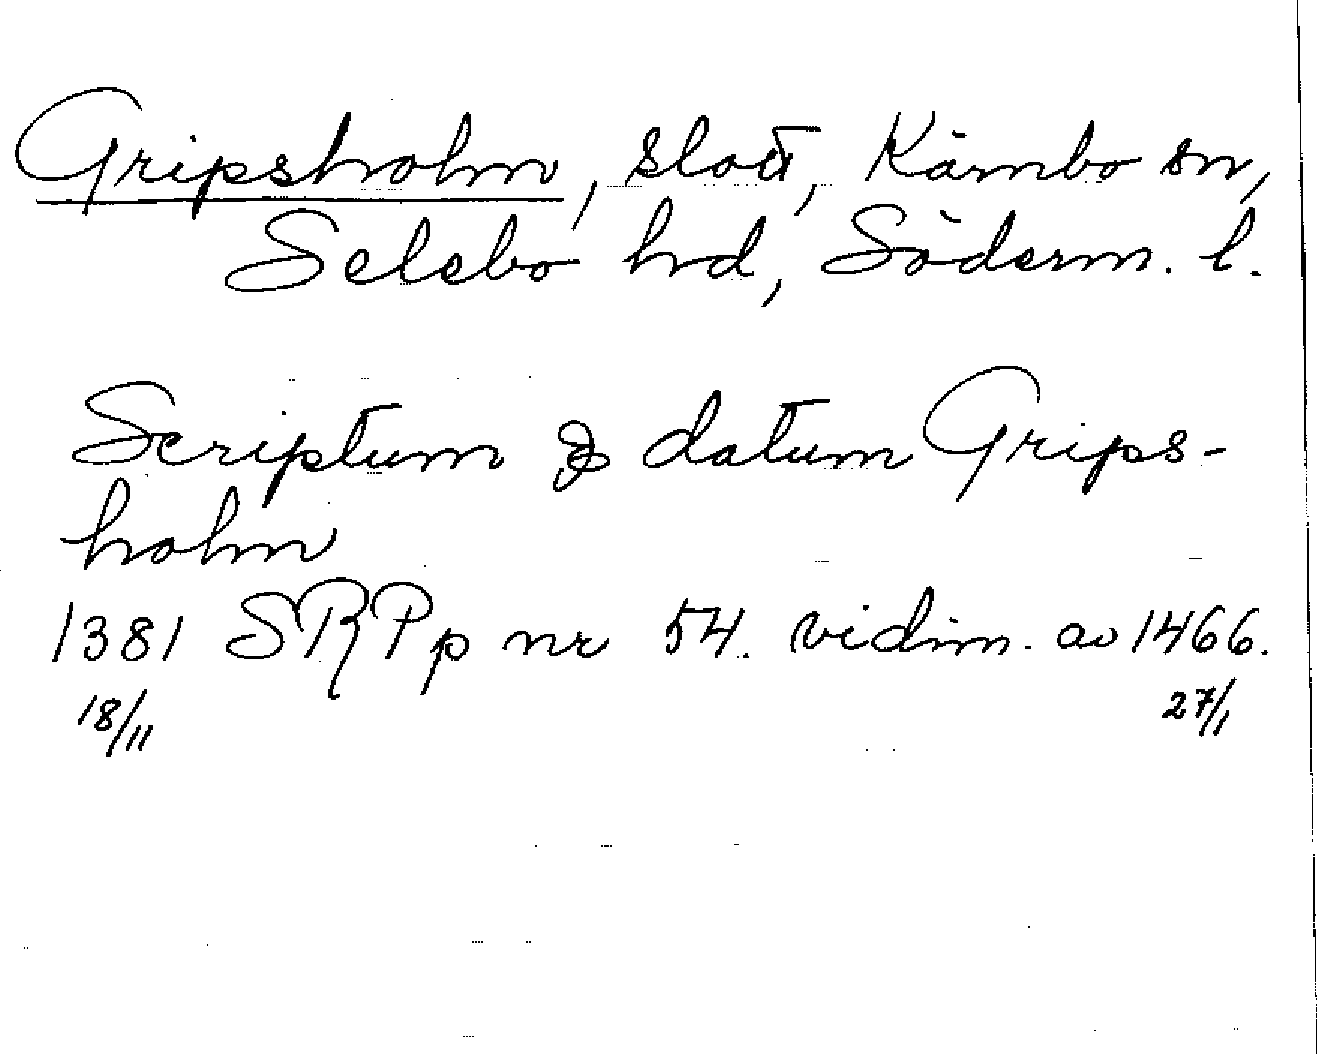 Gripsholm, slott, Kärnbo sn,
Selebo hd, Söderm. l.
Scriptum & datum Grips-
holm
1381 SRPp nr 54. vidim. av 1466.
18/11 27/1